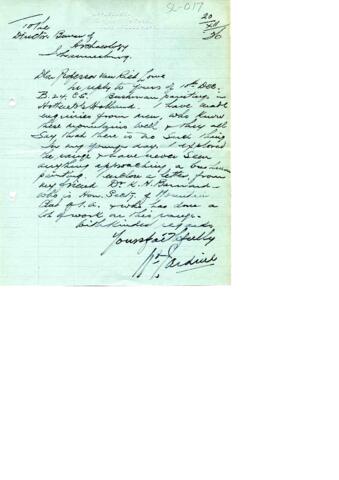 SL-017
20
XII
36
To the
Director Bureau of
Archaeology
Johannesburg
Dear Professor van Riet Lowe
In reply to yours of 14th Dec.
B.24.C5. Bushman paintings in
Hottentots Holland. I have made
enquiries from men, who know
these mountains well & they all
say that there is no such thing
In my younger days I explored
the range & have never seen
anything approaching a bushman
painting. I enclose a letter, from
my friend Dr. K. H. Barnard
who is Hon. Secty. of Mountain
Club of S.A. & who has done a
lot of work on this range.
With kindest regards
Yours faithfully
Jardine